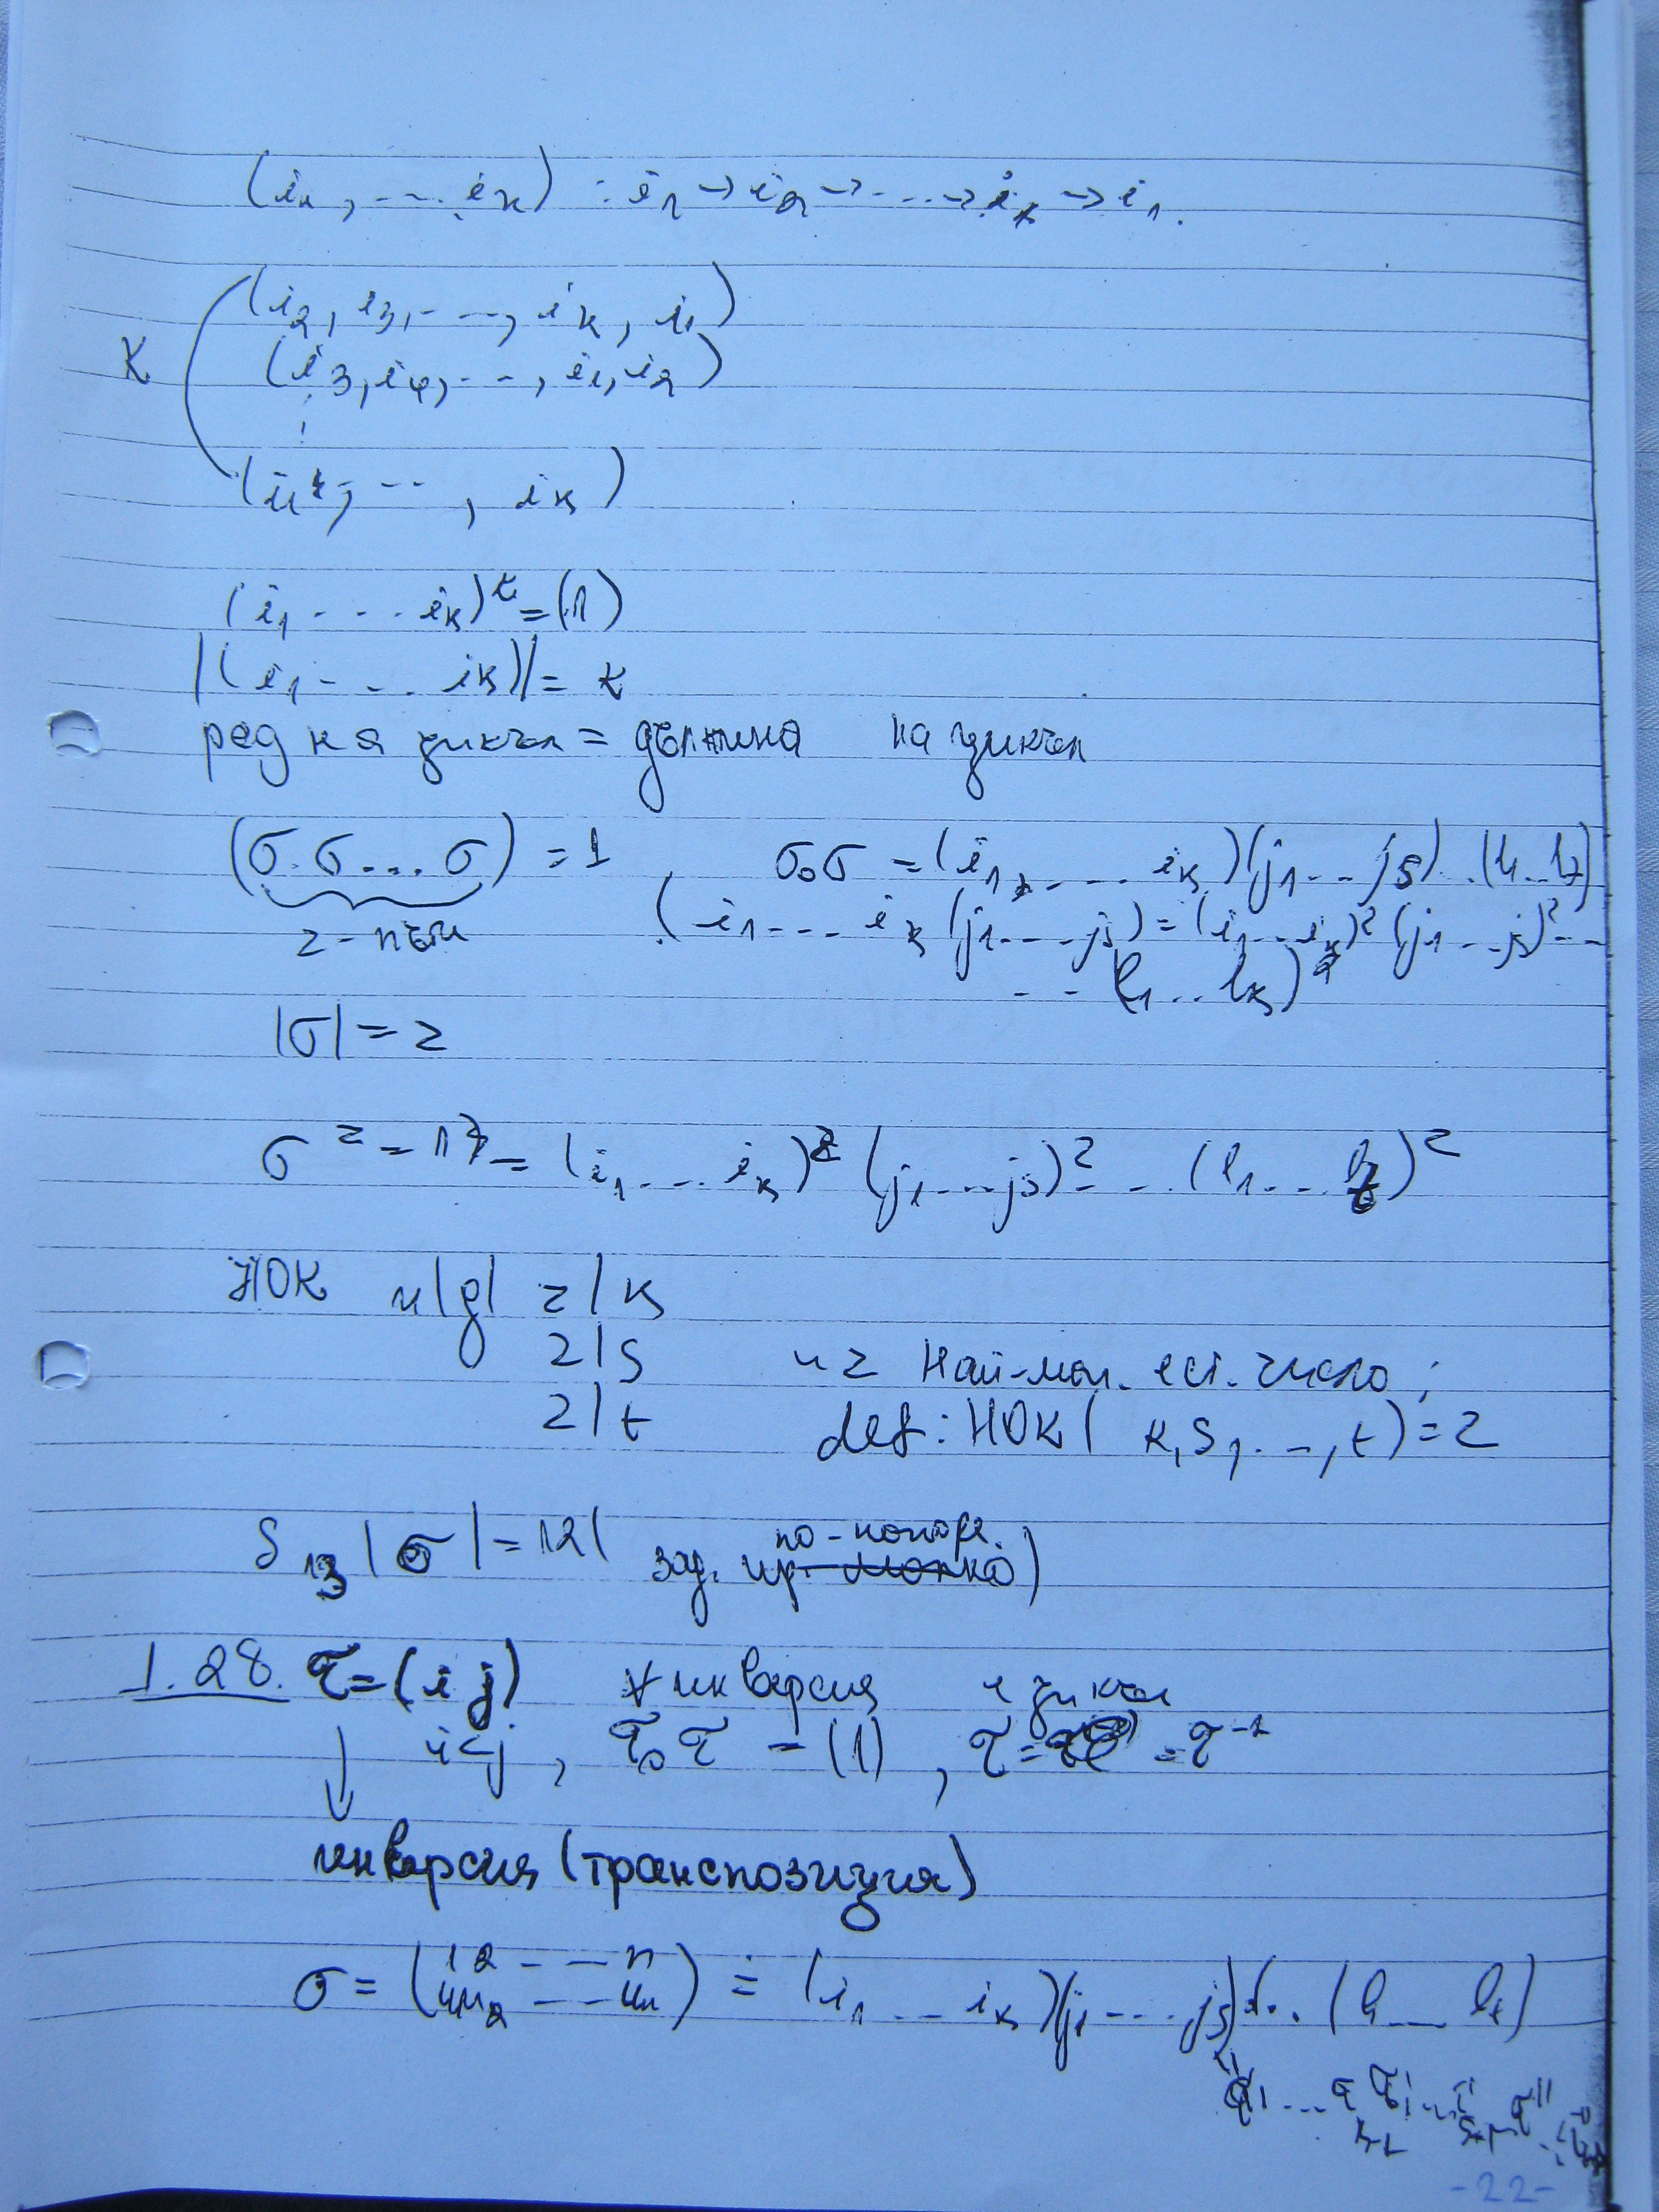 (i₁, ... iₖ) : i₁ → i₂ → ... → iₖ → i₁.
(i₂, i₃, ..., iₖ, i₁)
K
(i₃, i₄, ..., i₁, i₂)
(i₁, ..., iₖ)
(i₁ ... iₖ)ᵏ = (1)
|(i₁ ... iₖ)| = k
ред на цикъл = дължина на цикъл
(σ.σ...σ) = 1 σ∘σ = (i₁, ... iₖ)(j₁...jₛ)...(l₁...lₜ)
z-пъти (i₁ ... iₖ (j₁...jₛ) = (i₁...iₖ)² (j₁...jₛ)² ...
... (l₁...lₖ)²
|σ| = z
σᶻ = 1 = (i₁ ... iₖ)ᶻ (j₁ ... jₛ)ᶻ ... (l₁ ... lₜ)ᶻ
НОК z | k
z | s и z най-мал. ест. число;
z | t def: НОК( k, s, ..., t) = z
по-нагоре
S₁₃ |σ| = 12 зад.
1.28. τ = (i j) ∀ инверсия е цикъл
i < j , τ∘τ = (1) , τ = τ⁻¹
инверсия (транспозиция)
σ = (1 2 ... n / i₁ i₂ ... iₙ) = (i₁ ... iₖ)(j₁ ... jₛ) ... (l₁ ... lₜ)
-22-